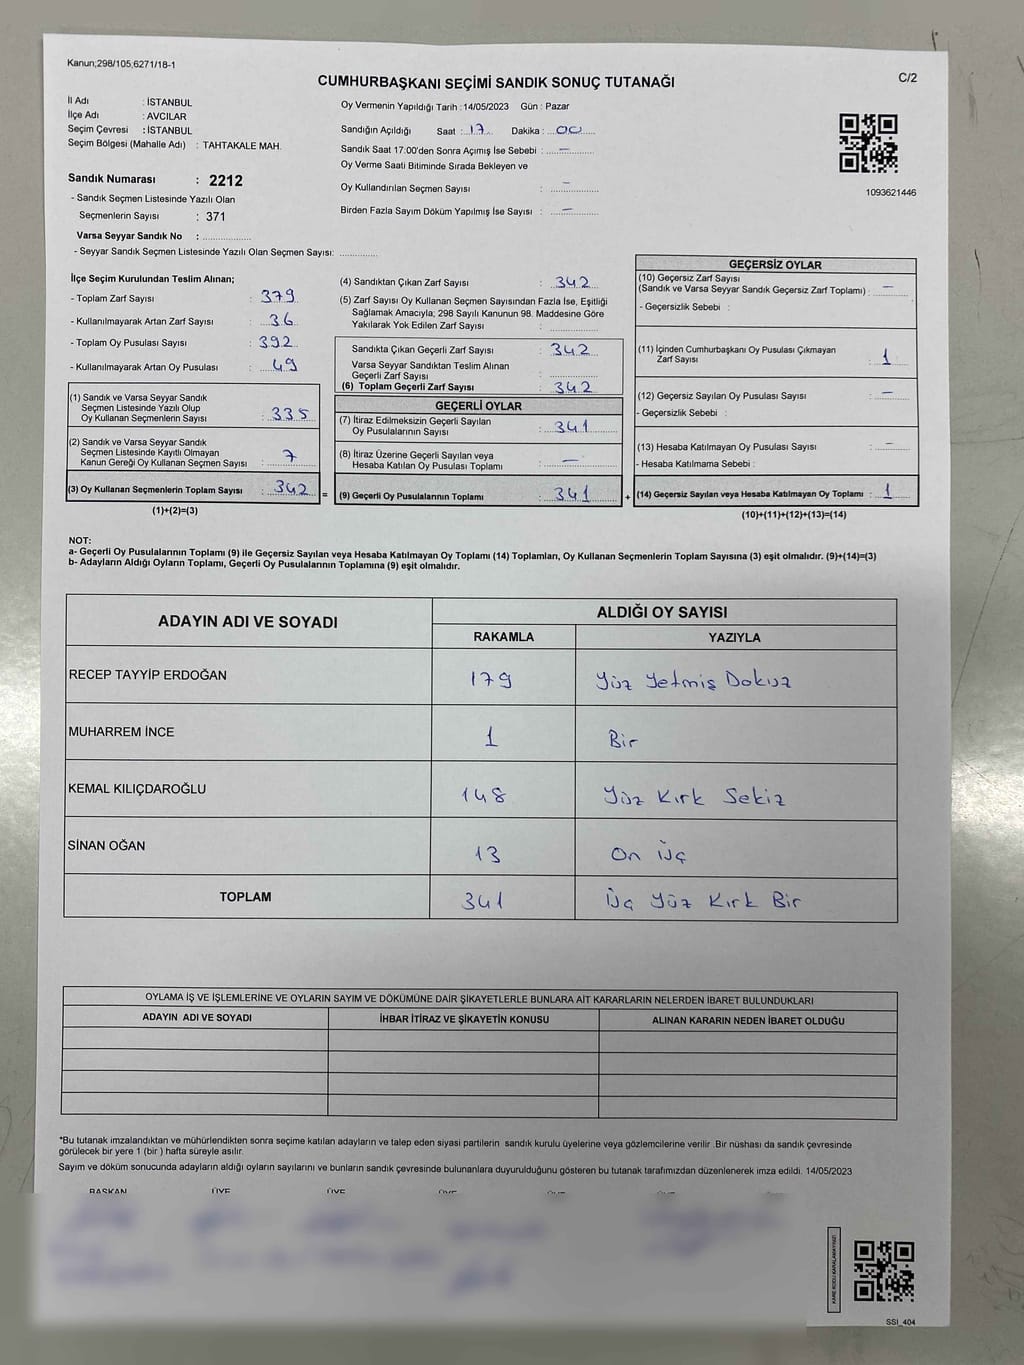 Kanun;298/105,6271/18-1
C/2
CUMHURBAŞKANI SEÇİMİ SANDIK SONUÇ TUTANAĞI
İl Adı : İSTANBUL
İlçe Adı : AVCILAR
Seçim Çevresi : İSTANBUL
Seçim Bölgesi (Mahalle Adı) : TAHTAKALE MAH.
Sandık Numarası : 2212
- Sandık Seçmen Listesinde Yazılı Olan
Seçmenlerin Sayısı : 371
Varsa Seyyar Sandık No :
- Seyyar Sandık Seçmen Listesinde Yazılı Olan Seçmen Sayısı:
Oy Vermenin Yapıldığı Tarih : 14/05/2023 Gün : Pazar
Sandığın Açıldığı Saat : 17 Dakika : 00
Sandık Saat 17:00'den Sonra Açımış İse Sebebi : –
Oy Verme Saati Bitiminde Sırada Bekleyen ve
Oy Kullandırılan Seçmen Sayısı : –
Birden Fazla Sayım Döküm Yapılmış İse Sayısı : –
1093621446
İlçe Seçim Kurulundan Teslim Alınan;
- Toplam Zarf Sayısı : 379
- Kullanılmayarak Artan Zarf Sayısı : 36
- Toplam Oy Pusulası Sayısı : 392
- Kullanılmayarak Artan Oy Pusulası : 49
(1) Sandık ve Varsa Seyyar Sandık
Seçmen Listesinde Yazılı Olup
Oy Kullanan Seçmenlerin Sayısı : 335
(2) Sandık ve Varsa Seyyar Sandık
Seçmen Listesinde Kayıtlı Olmayan
Kanun Gereği Oy Kullanan Seçmen Sayısı : 7
(3) Oy Kullanan Seçmenlerin Toplam Sayısı : 342
(1)+(2)=(3)
(4) Sandıktan Çıkan Zarf Sayısı : 342
(5) Zarf Sayısı Oy Kullanan Seçmen Sayısından Fazla İse, Eşitliği
Sağlamak Amacıyla; 298 Sayılı Kanunun 98. Maddesine Göre
Yakılarak Yok Edilen Zarf Sayısı :
Sandıkta Çıkan Geçerli Zarf Sayısı : 342
Varsa Seyyar Sandıktan Teslim Alınan
Geçerli Zarf Sayısı :
(6) Toplam Geçerli Zarf Sayısı : 342
GEÇERLİ OYLAR
(7) İtiraz Edilmeksizin Geçerli Sayılan
Oy Pusulalarının Sayısı : 341
(8) İtiraz Üzerine Geçerli Sayılan veya
Hesaba Katılan Oy Pusulası Toplamı : –
= (9) Geçerli Oy Pusulalarının Toplamı : 341
GEÇERSİZ OYLAR
(10) Geçersiz Zarf Sayısı
(Sandık ve Varsa Seyyar Sandık Geçersiz Zarf Toplamı) : –
- Geçersizlik Sebebi :
(11) İçinden Cumhurbaşkanı Oy Pusulası Çıkmayan
Zarf Sayısı : 1
(12) Geçersiz Sayılan Oy Pusulası Sayısı : –
- Geçersizlik Sebebi :
(13) Hesaba Katılmayan Oy Pusulası Sayısı : –
- Hesaba Katılmama Sebebi :
+ (14) Geçersiz Sayılan veya Hesaba Katılmayan Oy Toplamı : 1
(10)+(11)+(12)+(13)=(14)
NOT:
a- Geçerli Oy Pusulalarının Toplamı (9) ile Geçersiz Sayılan veya Hesaba Katılmayan Oy Toplamı (14) Toplamları, Oy Kullanan Seçmenlerin Toplam Sayısına (3) eşit olmalıdır. (9)+(14)=(3)
b- Adayların Aldığı Oyların Toplamı, Geçerli Oy Pusulalarının Toplamına (9) eşit olmalıdır.
ADAYIN ADI VE SOYADI
ALDIĞI OY SAYISI
RAKAMLA YAZIYLA
RECEP TAYYİP ERDOĞAN 179 Yüz Yetmiş Dokuz
MUHARREM İNCE 1 Bir
KEMAL KILIÇDAROĞLU 148 Yüz Kırk Sekiz
SİNAN OĞAN 13 On Üç
TOPLAM 341 Üç Yüz Kırk Bir
OYLAMA İŞ VE İŞLEMLERİNE VE OYLARIN SAYIM VE DÖKÜMÜNE DAİR ŞİKAYETLERLE BUNLARA AİT KARARLARIN NELERDEN İBARET BULUNDUKLARI
ADAYIN ADI VE SOYADI İHBAR İTİRAZ VE ŞİKAYETİN KONUSU ALINAN KARARIN NEDEN İBARET OLDUĞU
*Bu tutanak imzalandıktan ve mühürlendikten sonra seçime katılan adayların ve talep eden siyasi partilerin sandık kurulu üyelerine veya gözlemcilerine verilir .Bir nüshası da sandık çevresinde
görülecek bir yere 1 (bir ) hafta süreyle asılır.
Sayım ve döküm sonucunda adayların aldığı oyların sayılarını ve bunların sandık çevresinde bulunanlara duyurulduğunu gösteren bu tutanak tarafımızdan düzenlenerek imza edildi. 14/05/2023
BAŞKAN ÜYE ÜYE
KARE KODU KARALAMAYINIZ!
SSI_404